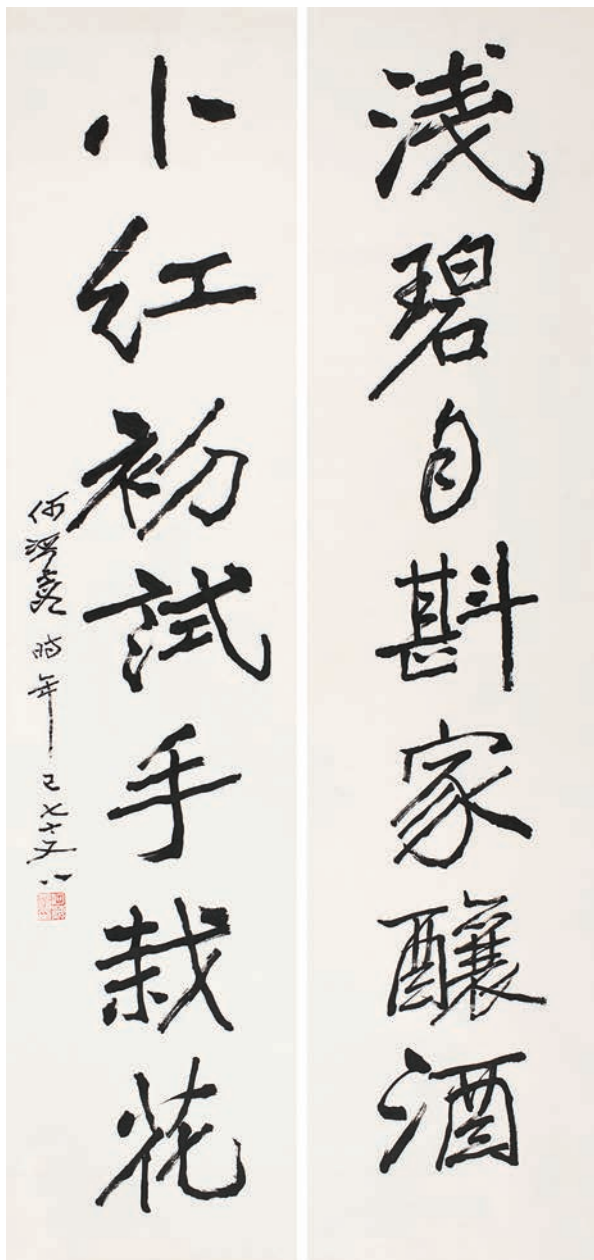 浅碧自斟家釀酒
小红初試手栽花
何海霞時年已七十又八